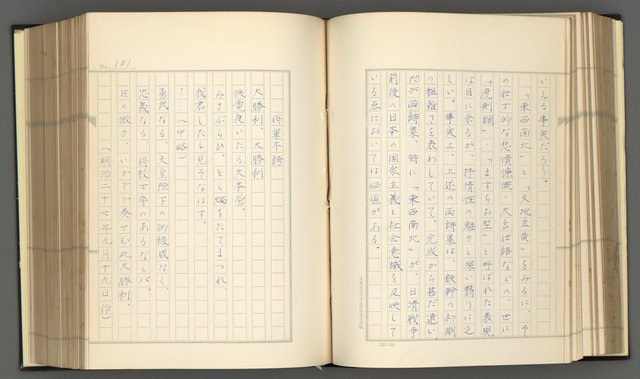 いえる事実だろう。
「東西南北」と「天地玄黄」をみるに、そ
の壮士的な悲憤慷慨、大言壮語などの、世に
「虎剣調」・「ますらお型」と呼ばれた表現
は目に余るが、抒情性の魅力と深い翳りに乏
しい。事実上、上述の両詩集は、鉄幹の初期
の粗雑さを表わしていて、完成から甚だ遠い
だが両詩集、特に「東西南北」が、日清戦争
前後の日本の国家主義と社会意識を反映して
いる点においては価値がある。
No. 101
将軍不誇
大勝利、大勝利
快電夜いたる大本営。
みさぶらひ、とく燭をたてまつれ、
我君したし見そなはす。
…(中略)
勇武なる、天皇陛下の御稜威なく、
忠義なる、将校士卒のあるなくバ、
臣の微力、いかでか奏せむ此大勝利。
(明治二十七年九月十九日作)